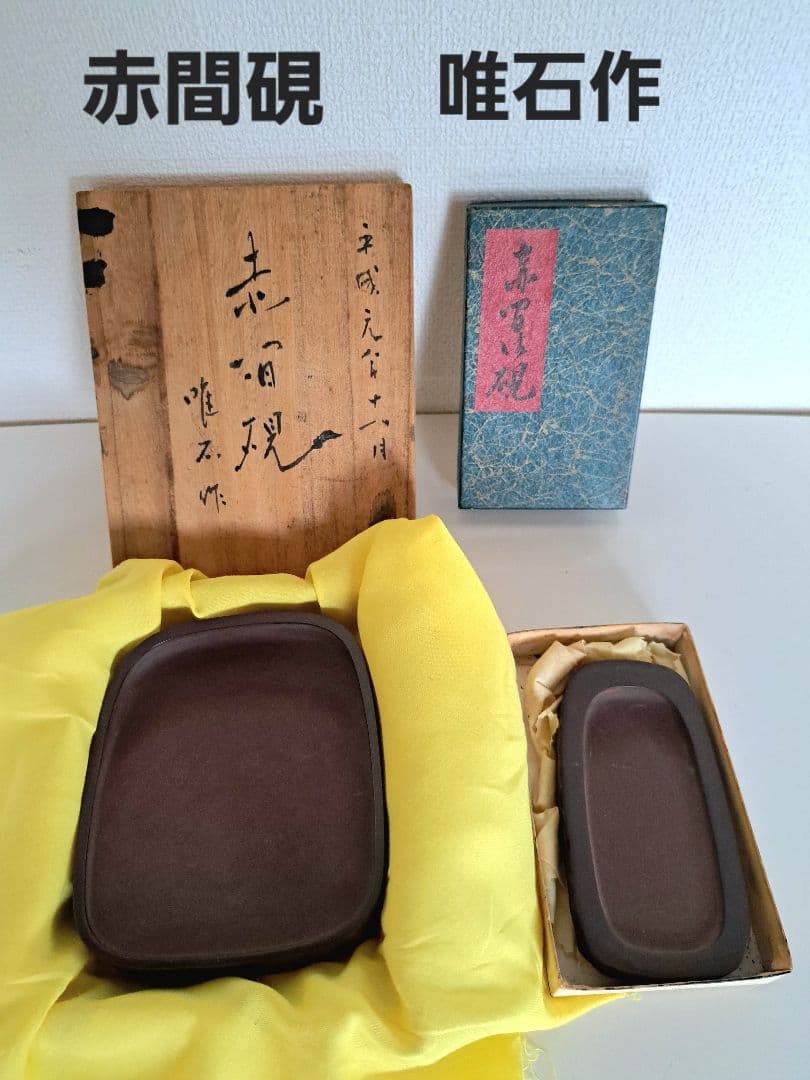 赤間硯 唯石作
平成元年十一月
赤間硯
唯石作
赤間硯